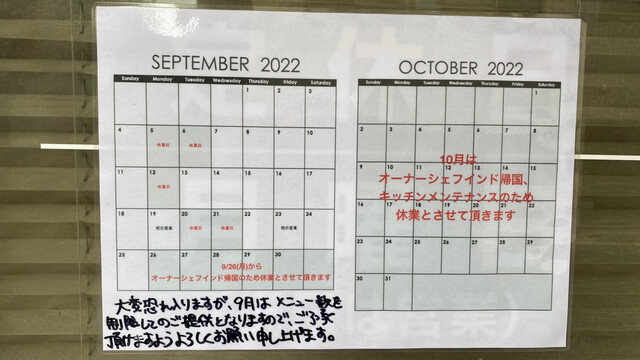 SEPTEMBER 2022
Sunday Monday Tuesday Wednesday Thursday Friday Saturday
1 2 3
4 5 6 7 8 9 10
休業日 休業日
11 12 13 14 15 16 17
休業日
18 19 20 21 22 23 24
祝日営業 休業日 休業日 祝日営業
25 26 27 28 29 30
9/26(月)から
オーナーシェフインド帰国のため休業とさせて頂きます
OCTOBER 2022
Sunday Monday Tuesday Wednesday Thursday Friday Saturday
1
2 3 4 5 6 7 8
9 10 11 12 13 14 15
10月は
オーナーシェフインド帰国、
キッチンメンテナンスのため
16 17 18 19 20 21 22
休業とさせて頂きます
23 24 25 26 27 28 29
30 31
大変恐れ入りますが、9月はメニュー数を
制限してのご提供となりますので、ご了承
頂けますようよろしくお願い申し上げます。